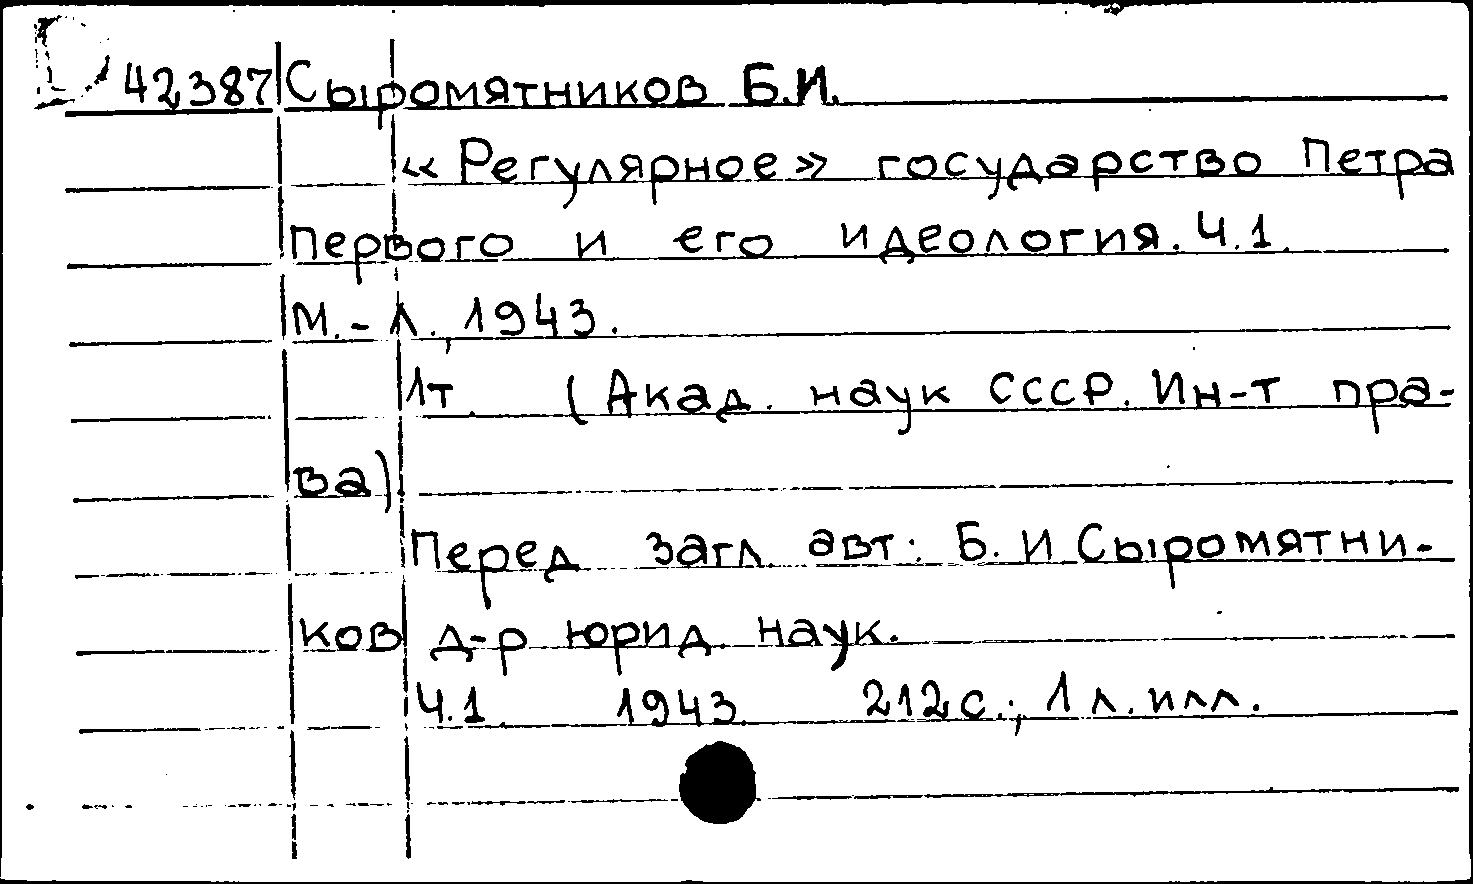 42387 Сыромятников Б.И.
«Регулярное» государство Петра
Первого и его идеология. Ч.1.
М.-Л., 1943.
1т. (Акад. наук СССР. Ин-т пра-
ва).
Перед загл. авт: Б. И Сыромятни-
ков д-р юрид. наук.
Ч.1. 1943. 212с.; 1 л. илл.